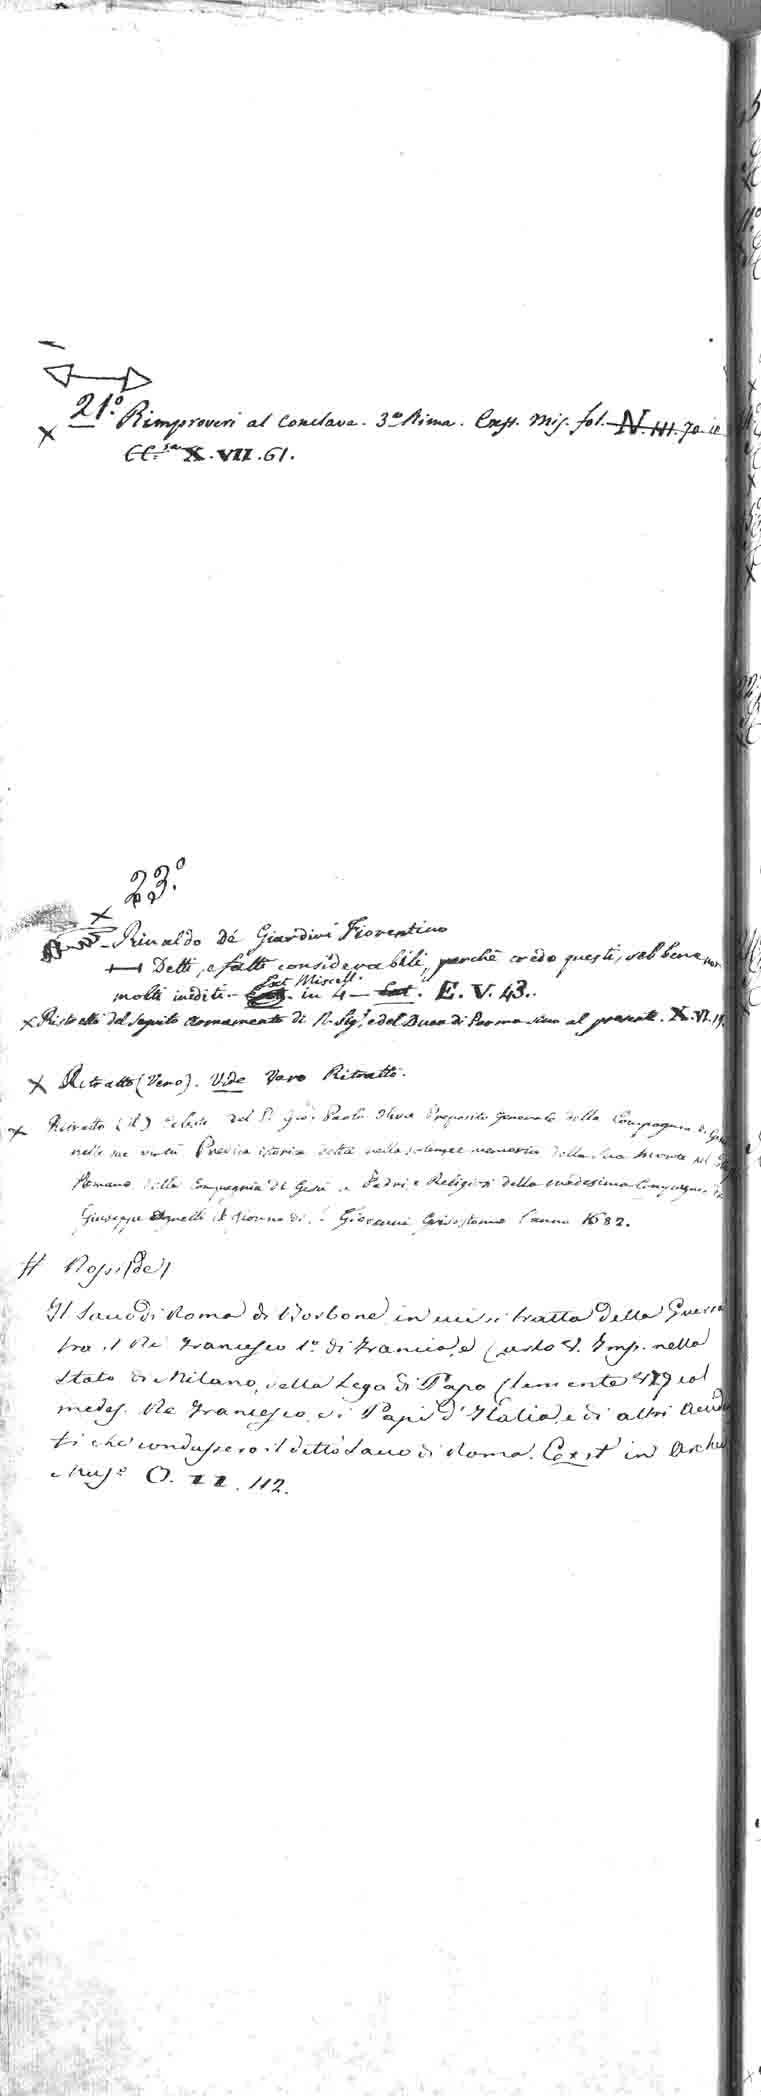 21.º
× Rimproveri al Conclave. 3ª Rima. Cass. Mis. fol. N. III. 70. ie
CC.ᵗᵃ X. VII. 61.
23.º
×
Rinaldo de Giardini Fiorentino
Detti, e fatti considerabili, perchè credo questi, sebbene non
Lat Miscell.
molti inediti - in 4 - Lat. E. V. 43.
× Ristretto del Seguito Armamento di N. Sig.ʳ e del Duca di Parma sino al presente. X. VI. 19.
× Ritratto (Vero). Vide Vero Ritratto.
× Ritratto (il) Celeste del P. Gio: Paolo Oliva Preposito Generale della Compagnia di Gesù
nelle sue virtù Predica istoria detta nella solenne memoria della sua morte nel
Romano della Compagnia di Gesù a Padri e Religiosi della medesima Compagnia da
Giuseppe Agnelli il giorno di S. Giovanni Grisostomo l'anno 1682.
# Rossi (de)
Il Sacco di Roma di Borbone in cui si tratta della Guerra
tra il Re Francesco 1º di Francia, e Carlo V. Imp. nello
Stato di Milano, della Lega di Papa Clemente VII col
medes. Re Francesco, di Papi d'Italia, e di altri Acciden
ti che condussero il detto Sacco di Roma. Exit in Archu
Mus.º O. II. 112.